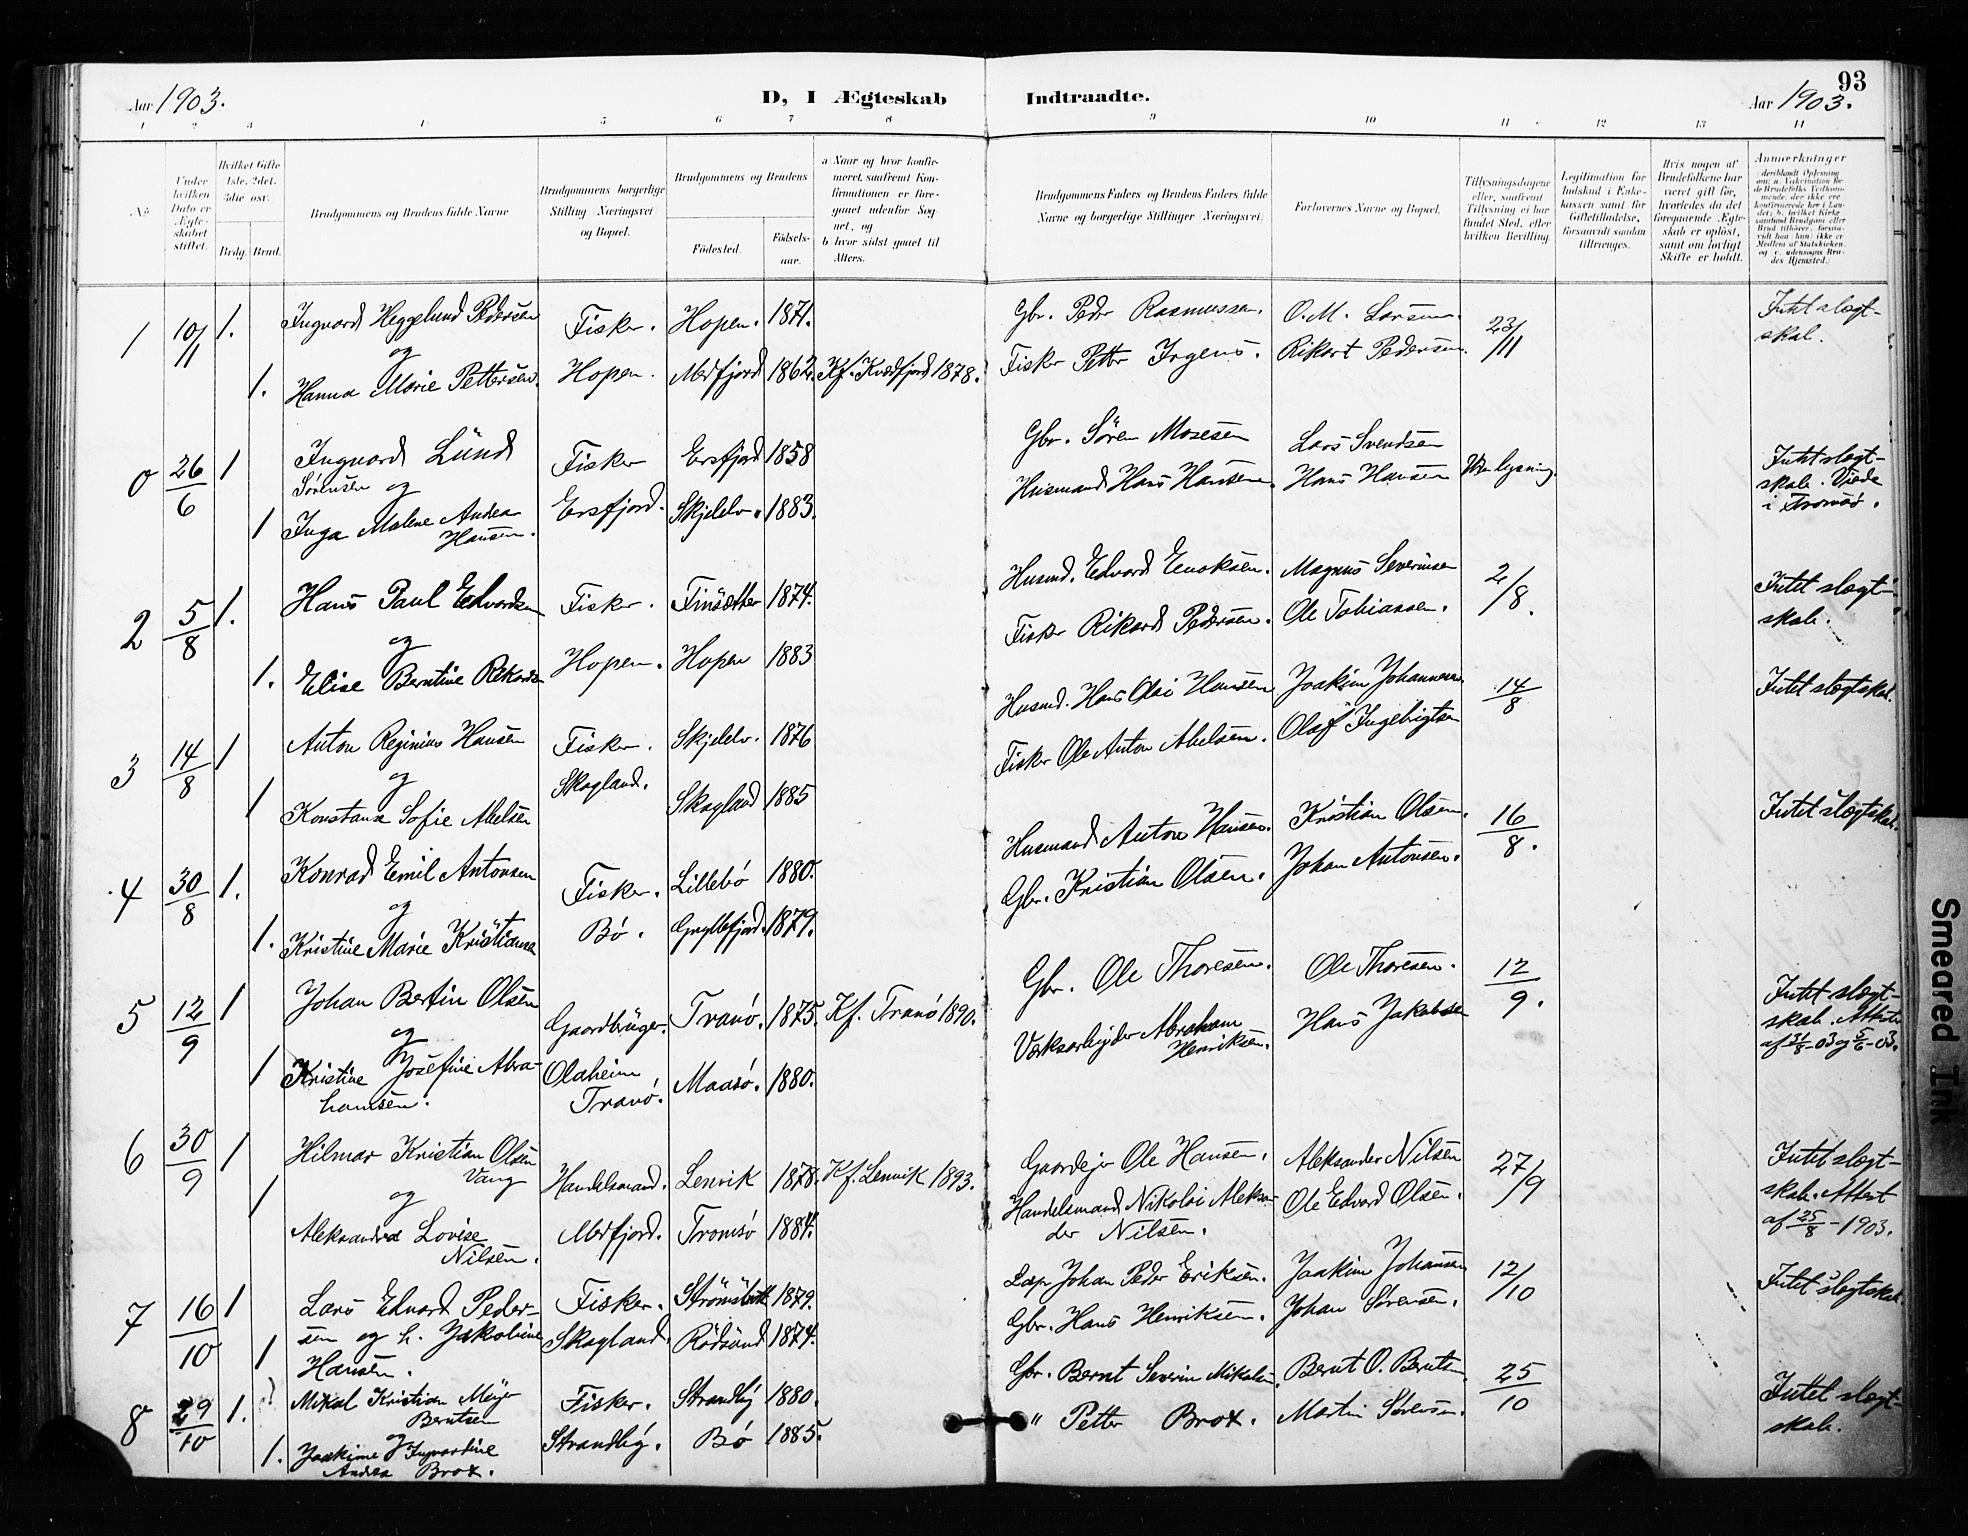 93
Aar 1903.
D, I Ægteskab Indtraadte.
Aar 1903.
1 2 3 4 5 6 7 8 9 10 11 12 13 14
No.
Under hvilken Dato er Ægteskabet stiftet.
Hvilket Gifte 1ste. 2det. 3die osv.
Brdg. Brud.
Brudgommens og Brudens fulde Navne
Brudgommens borgerlige Stilling Næringsvei og Bopæl.
Brudgommens og Brudens
Fødested.
Fødsels-aar.
a Naar og hvor konfirmeret, saafremt Konfirmationen er foregaaet udenfor Sognet, og
b hvor sidst gaaet til Alters.
Brudgommens Faders og Brudens Faders fulde Navne og borgerlige Stillinger Næringsvei.
Forlovernes Navne og Bopæl.
Tillysningsdagene eller, saafremt Tillysning ei har fundet Sted, efter hvilken Bevilling.
Legitimation for Indskud i Enkekassen samt for Giftetilladelse, forsaavidt saadan tiltrænges.
Hvis nogen af Brudefolkene har været gift før, hvorledes da det foregaaende Ægteskab er opløst, samt om lovligt Skifte er holdt.
Anmerkninger
1 10/11 1. Ingvard Heggelund Pedersen Fisker. Hopen. 1871. Gbr. Peder Rasmussen. O. M. Larsen. 23/11 Intet slægt-
og skab.
1. Hanna Marie Pettersen. Hopen. Medfjord 1862. Kf. Kvædfjord 1878. Fisker Petter Irgens. Rikart Pedersen.
0 26/6 1 Ingvard Lünd Fisker Ersfjord 1858 Gbr. Sören Mosesen Lars Svendsen Intet slægt-
Sørensen og skab. Viede
1 Inga Malene Andrea Ersfjord. Skjelelv. 1883. Husmand Hans Hansen. Hans Hansen Uden lysning. i Tromsø.
Hansen.
2 5/8 1. Hans Paul Edvardsen Fisker. Finsæther 1874. Husmd. Edvard Enoksen. Magnus Severinsen 2/8. Intet slægt-
og skab.
1. Elise Berntine Rikards Hopen. Hopen 1883 Fisker Rikard Pedersen. Ole Tobiassen.
3 14/8 1 Anton Reginius Hansen Fisker. Skjelelv. 1876 Husmd. Hans Olai Hansen Joakim Johannesen 14/8 Intet slægtskab.
og
1 Konstanse Sofie Abelsen Skogland. Skogland 1885 Fisker Ole Anton Abelsen. Olaf Ingebrigtsen
4 30/8 1. Konrad Emil Antonsen Fisker. Lillebö 1880. Husmand Anton Hansen. Kristian Olsen. 16/8. Intet slægtskab.
og
1. Kristine Marie Kristiansen Bö. Gryllefjord. 1879. Gbr. Kristian Olsen. Johan Antonsen.
5 12/9 1 Johan Bertin Olsen Gaardbruger. Tranö. 1875. Kf. Tranö 1890. Gbr. Ole Thoresen. Ole Thoresen. 12/9. Intet slægt-
og skab. Attester
1 Kristine Josefine Abra- Olaheim Maasö. 1880. Værksarbejder Abraham Hans Jakobsen af 31/8-03 og 5/6-03.
hamsen. Tranö. Henriksen.
6 30/9 1 Hilmar Kristian Olsen Handelsmand. Lenvik 1878. Kf. Lenvik 1893. Gaardejer Ole Hansen. Aleksander Nilsen 27/9 Intet slægt-
Vang skab. Attest
og af 25/8-1903.
1 Aleksandra Lovise Medfjord. Tromsö 1884. Handelsmand Nikolai Aleksan- Ole Edvard Olsen.
Nilsen. der Nilsen.
7 16/10 1 Lars Edvard Peder- Fisker. 1879. Lap Johan Peder Eriksen. Joakim Johansen 12/10 Intet slægtskab.
1 sen og h. Jakobine Skogland. Rödsand 1874. Gbr. Hans Henriksen. Johan Sörensen.
Hansen.
8 29/10 1. Mikal Kristian Meyer Fisker. Strandby 1880. Gbr. Bernt Severin Mikalsen Bernt O. Berntsen 25/10 Intet slægt-
Berntsen skab.
og
1. Joakime Ingvardine Strandby. Bö 1885. " Petter Brox. Martin Sörensen.
Andrea Brox.
Smeared Ink